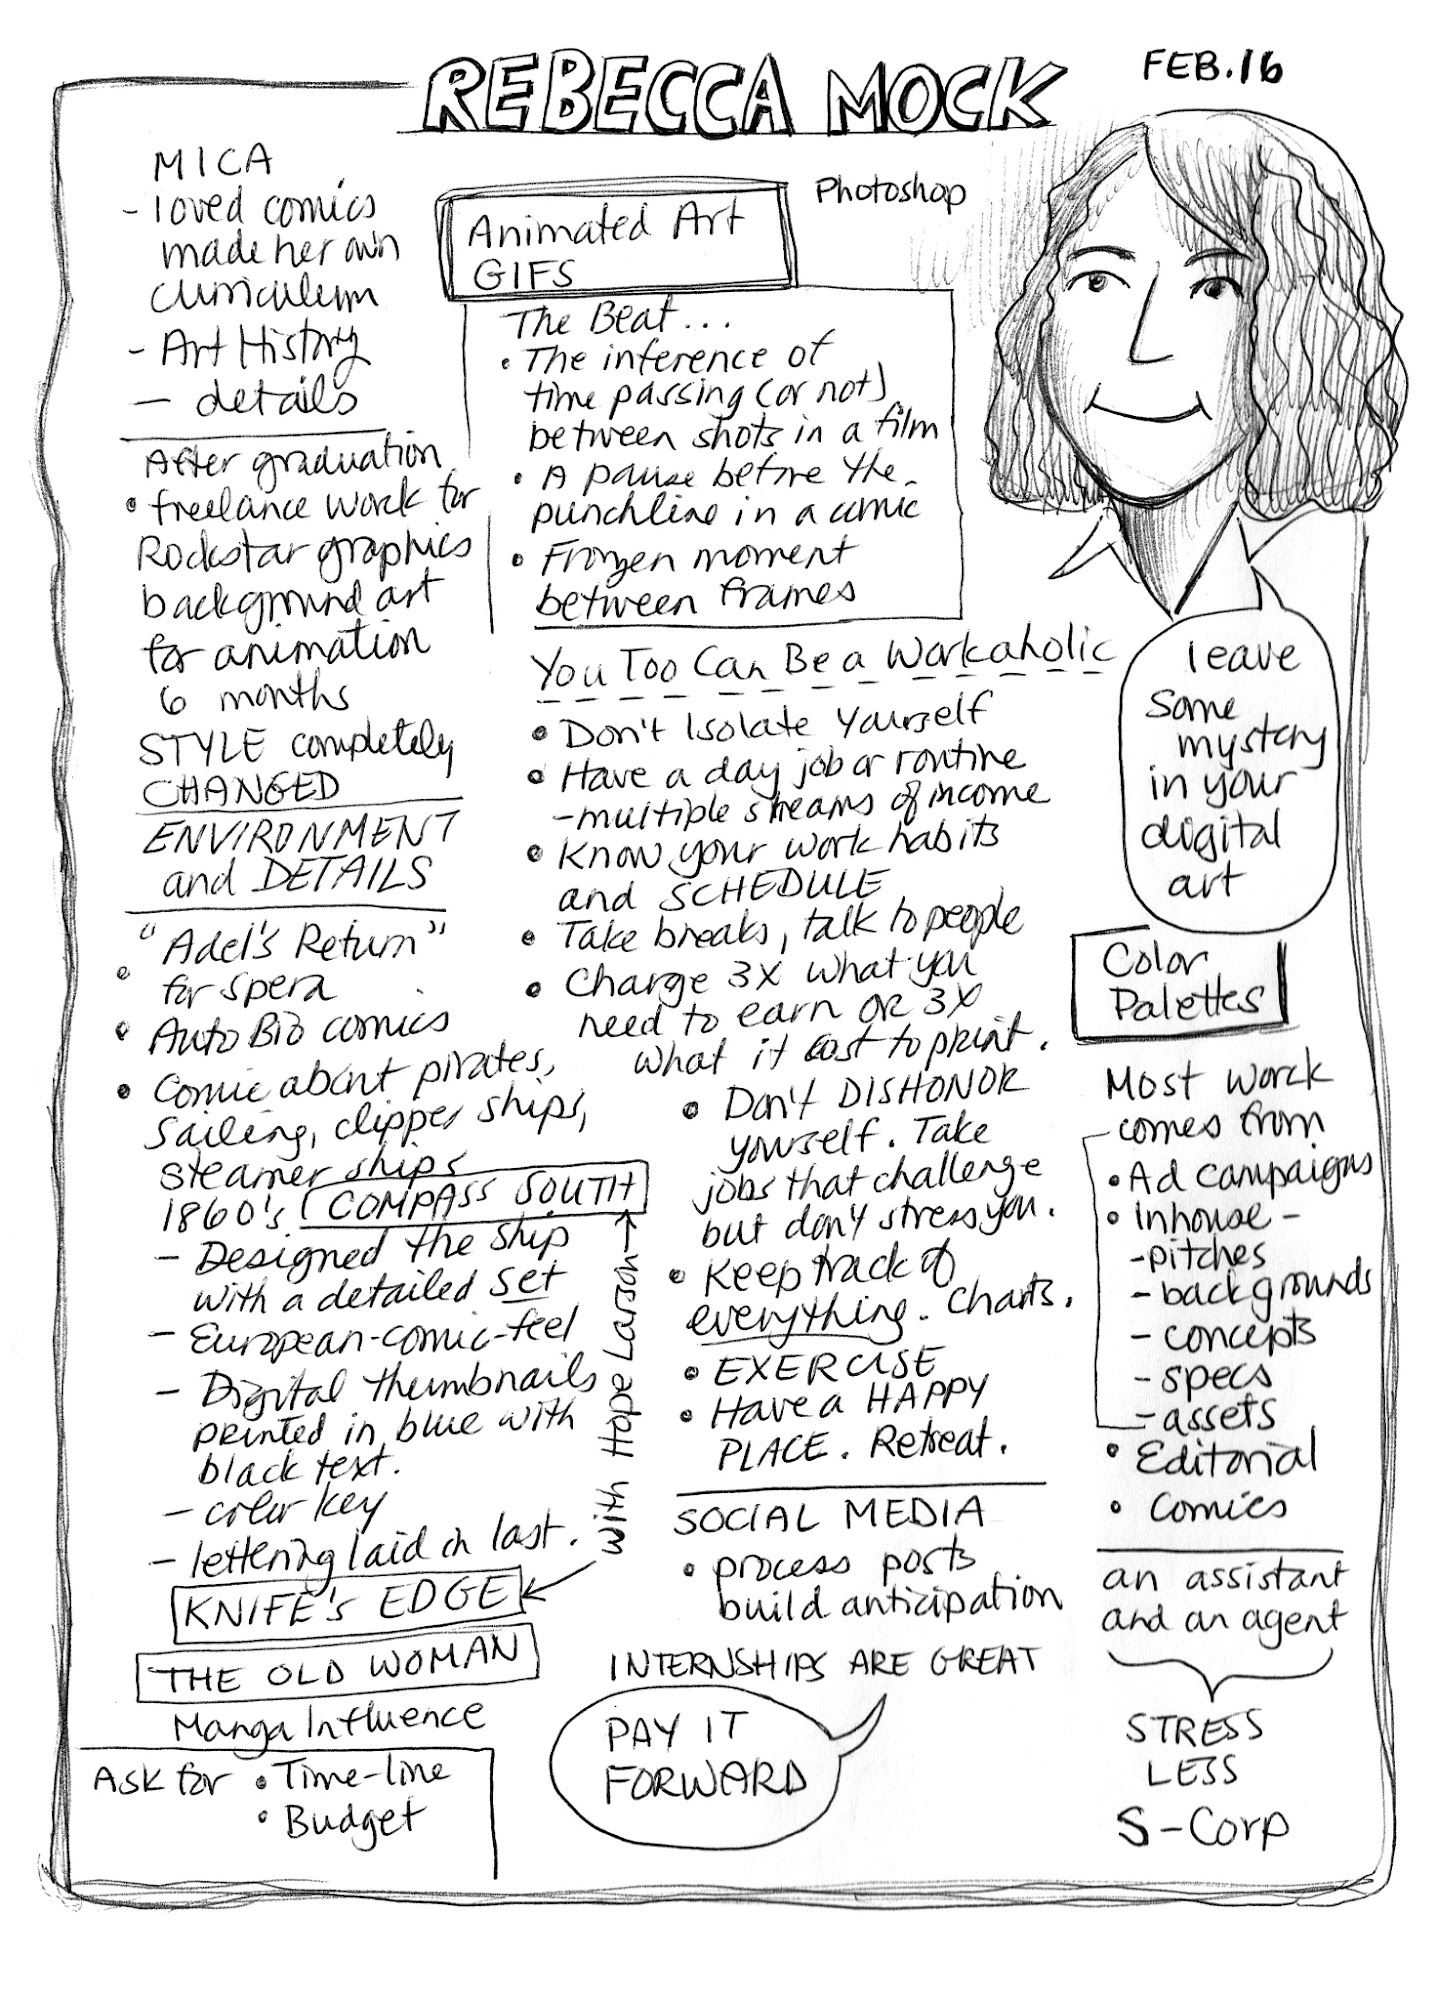 REBECCA MOCK
FEB.16
MICA
- loved comics
made her own
curriculum
- Art History
- details
After graduation
• freelance work for
Rockstar graphics
background art
for animation
6 months
STYLE completely
CHANGED
ENVIRONMENT
and DETAILS
"Adel's Return"
• for Spera
• Auto Bio comics
• Comic about pirates,
Sailing, clipper ships,
steamer ships
1860's COMPASS SOUTH
- Designed the ship
with a detailed set
- European-comic-feel
- Digital thumbnails
printed in blue with
black text.
- color key
- lettering laid in last.
with Hope Larson
KNIFE'S EDGE
THE OLD WOMAN
Manga Influence
Ask for • Time-line
• Budget
Animated Art
GIFS
Photoshop
The Beat...
• The inference of
time passing (or not)
between shots in a film
• A pause before the
punchline in a comic
• Frozen moment
between frames
You Too Can Be a Workaholic
• Don't Isolate Yourself
• Have a day job or routine
- multiple streams of income
• Know your work habits
and SCHEDULE
• Take breaks, talk to people
• Charge 3X what you
need to earn OR 3X
what it cost to print.
• Don't DISHONOR
yourself. Take
jobs that challenge
but don't stress you.
• Keep track of
everything. Charts.
• EXERCISE
• Have a HAPPY
PLACE. Retreat.
SOCIAL MEDIA
• process posts
build anticipation
INTERNSHIPS ARE GREAT
PAY IT
FORWARD
leave
some
mystery
in your
digital
art
Color
Palettes
Most work
comes from
• Ad campaigns
• inhouse -
- pitches
- backgrounds
- concepts
- specs
- assets
• Editorial
• Comics
an assistant
and an agent
STRESS
LESS
S-Corp